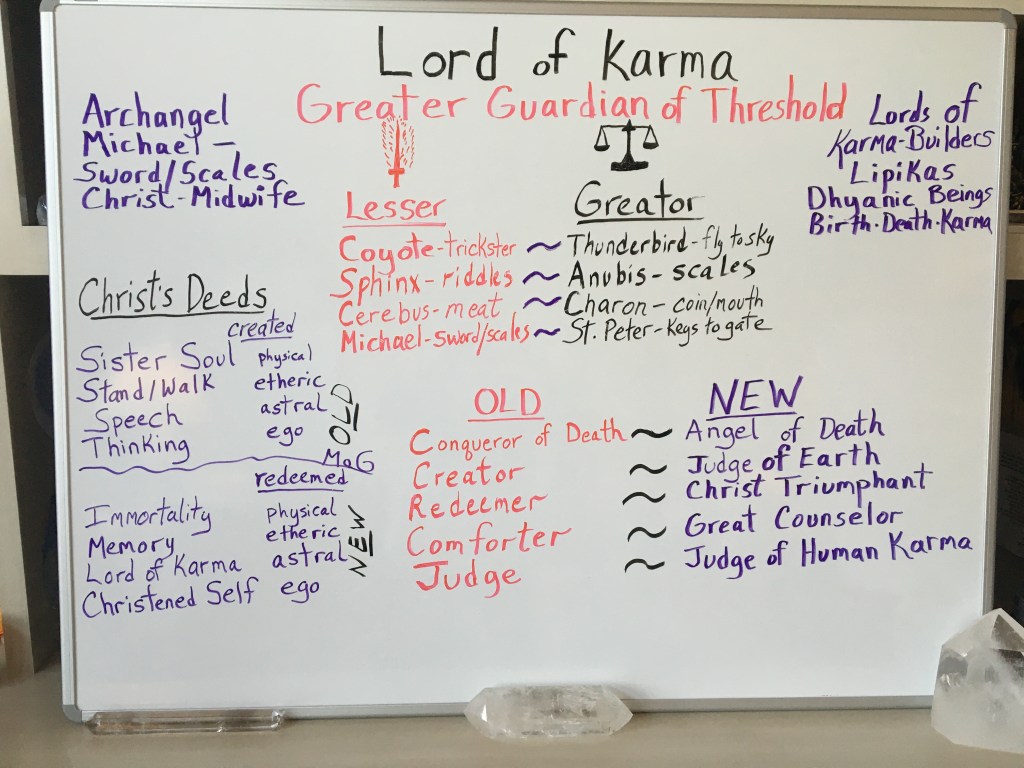 Lord of Karma
Greater Guardian of Threshold
Archangel
Michael –
Sword/Scales
Christ-Midwife
Lords of
Karma-Builders
Lipikas
Dhyanic Beings
Birth·Death·Karma
Lesser
Coyote-trickster ~
Sphinx-riddles ~
Cerebus-meat ~
Michael-sword/scales ~
Greator
Thunderbird-fly to sky
Anubis-scales
Charon-coin/mouth
St. Peter-keys to gate
Christ's Deeds
created
Sister Soul physical
Stand/Walk etheric
Speech astral
Thinking ego
OLD
MoG
redeemed
Immortality physical
Memory etheric
Lord of Karma astral
Christened Self ego
NEW
OLD
Conqueror of Death ~
Creator ~
Redeemer ~
Comforter ~
Judge ~
NEW
Angel of Death
Judge of Earth
Christ Triumphant
Great Counselor
Judge of Human Karma